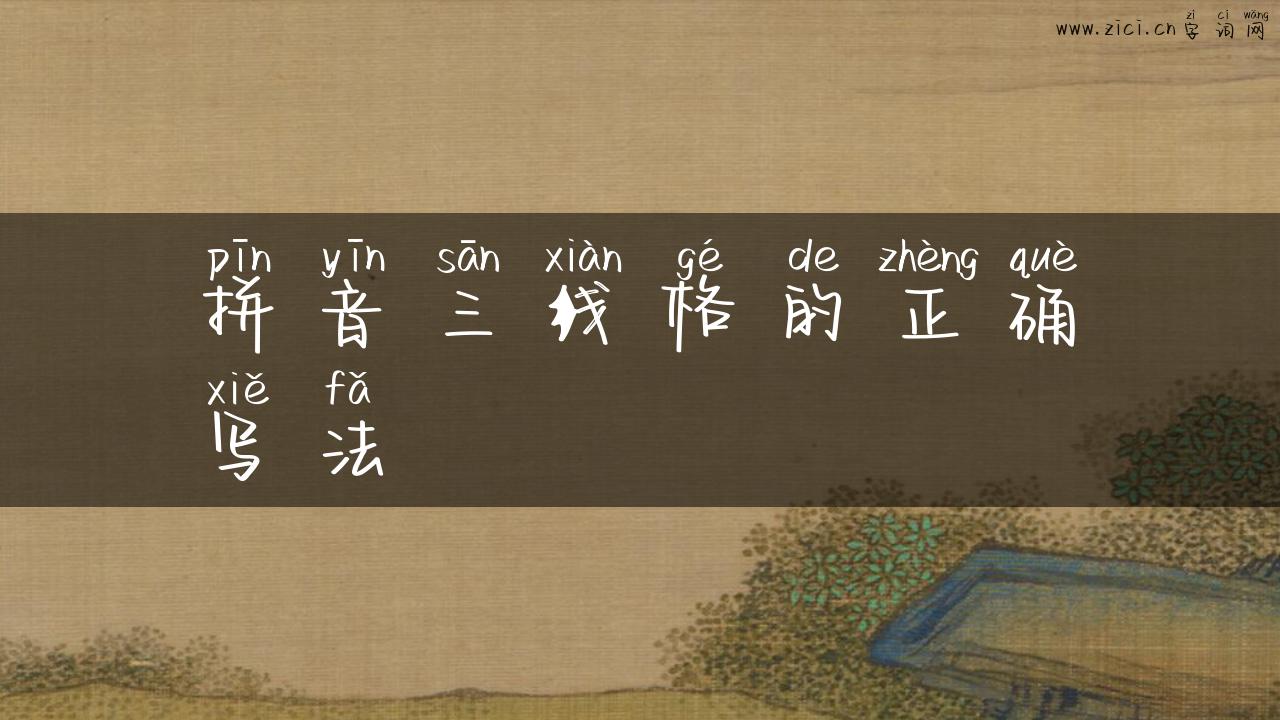 zì cí wǎng
www.zici.cn 字词网
pīn yīn sān xiàn gé de zhèng què
拼音三线格的正确
xiě fǎ
写法